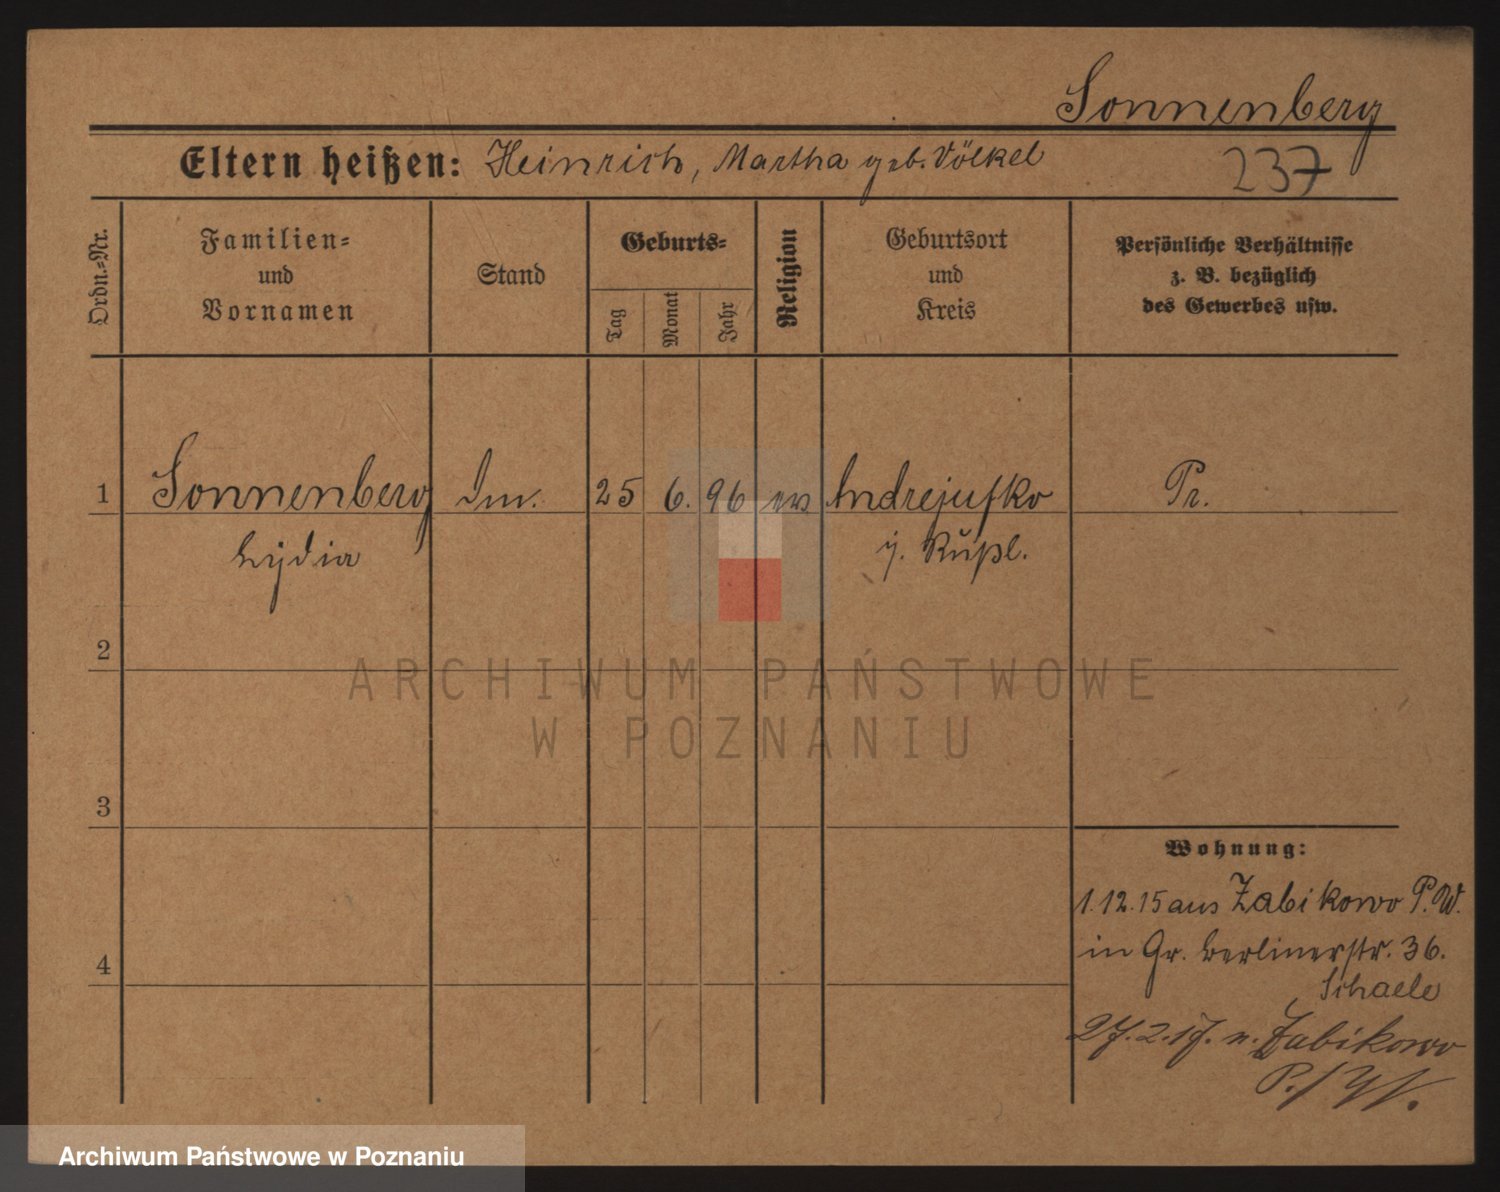 Sonnenberg
Eltern heißen: Heinrich, Martha geb. Völkel
237
Ordn.=Nr.
Familien=
und
Vornamen
Stand
Geburts=
Tag
Monat
Jahr
Religion
Geburtsort
und
Kreis
Persönliche Verhältnisse
z. B. bezüglich
des Gewerbes usw.
1 Sonnenberg 25 6. 96 ev Andrejufko Pr.
Lydia i. Rußl.
2
3
4
Wohnung:
1.12.15 aus Zabikowo P.W.
in Gr. Berlinerstr. 36.
Schaele
27.2.17. n. Zabikowo
P./W.
ARCHIWUM PAŃSTWOWE
W POZNANIU
Archiwum Państwowe w Poznaniu